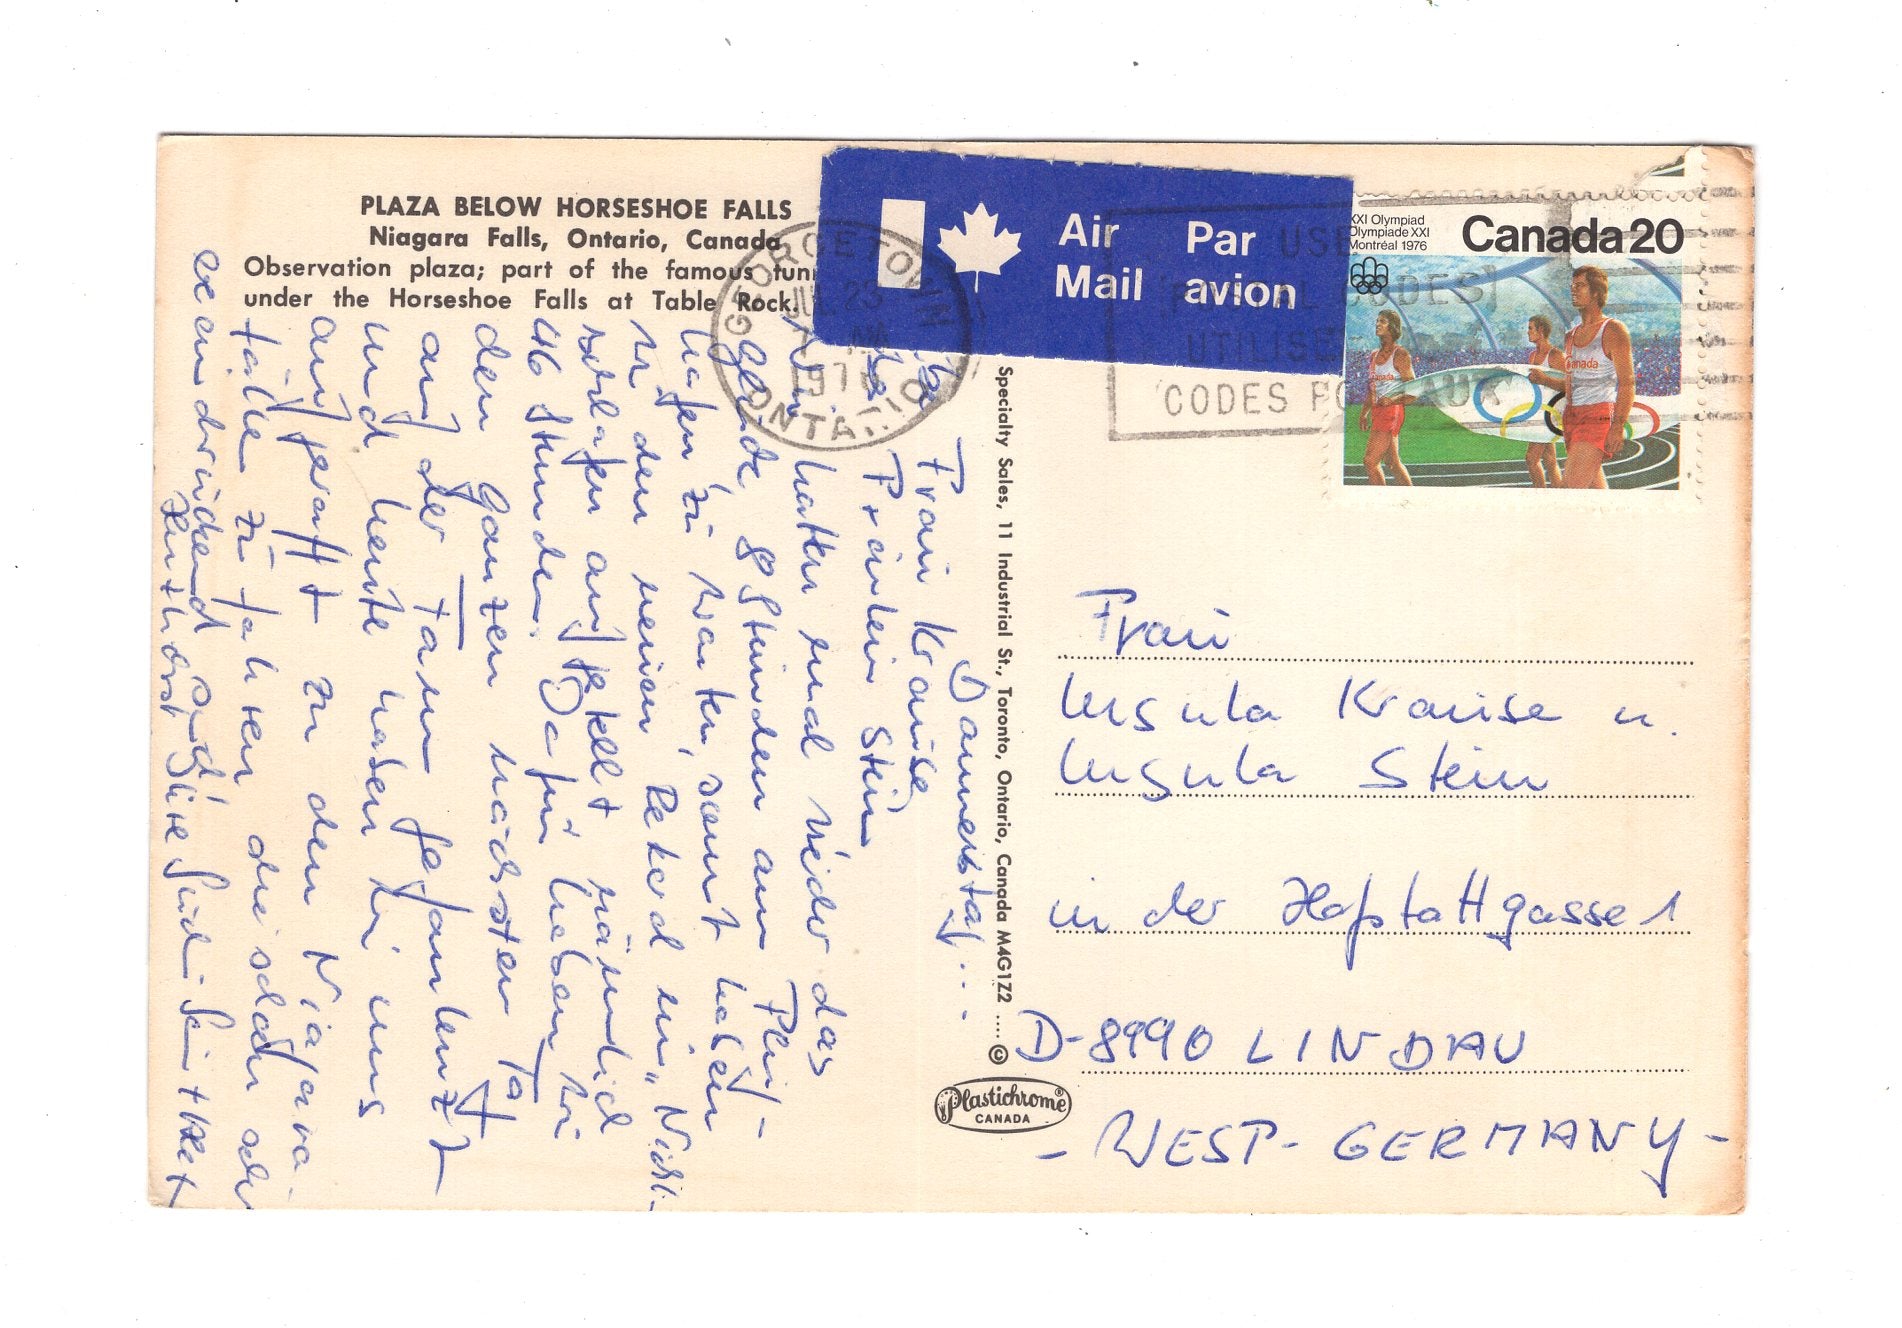 PLAZA BELOW HORSESHOE FALLS
Niagara Falls, Ontario, Canada
Observation plaza; part of the famous
under the Horseshoe Falls at Table Rock.
Air Mail
Par avion
GEORGETOWN
JUL 23
197
ONTARIO
USE
[POSTAL CODES]
UTILISE
CODES POSTAUX
XXI Olympiad
Olympiade XXI
Montréal 1976
Canada 20
Canada
Canada
Specialty Sales, 11 Industrial St., Toronto, Ontario, Canada M4G1Z2 ..... ©
Plastichrome®
CANADA
Donnerstag...
Frau Krause
Fräulein Stein
Wir hatten mal wieder das
8 Stunden am Flug-
hafen zu warten, somit haben
wir den neuen Rekord im „Nicht-
schlafen aufgestellt nämlich
46 Stunden. Dafür haben wir
den Ganzen nächsten Tag
auf der Farm gefaulenzt
und heute haben wir uns
aufgerafft zu den Niagara
fälle zu fahren die schon sehr
beeindruckend sind.
Herzliebst Grüße
Frau
Ursula Krause u.
Ursula Stein
in der Hofstattgasse 1
D-8990 LINDAU
- WEST-GERMANY -